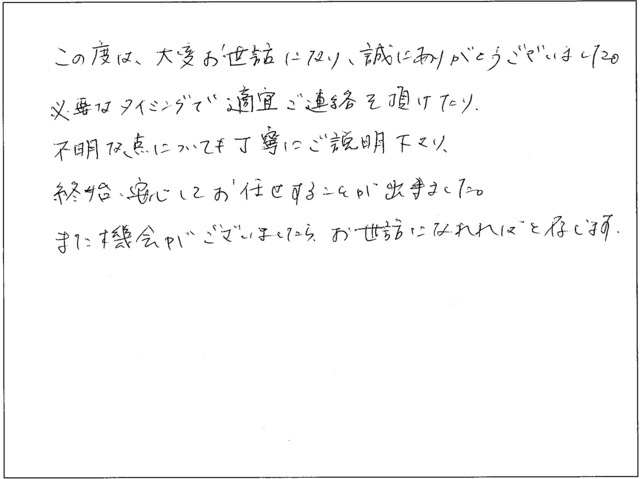 この度は、大変お世話になり、誠にありがとうございました。
必要なタイミングで適宜ご連絡を頂けたり、
不明な点についても丁寧にご説明下さり、
終始、安心してお任せすることが出来ました。
また機会がございましたら、お世話になれればと存じます。